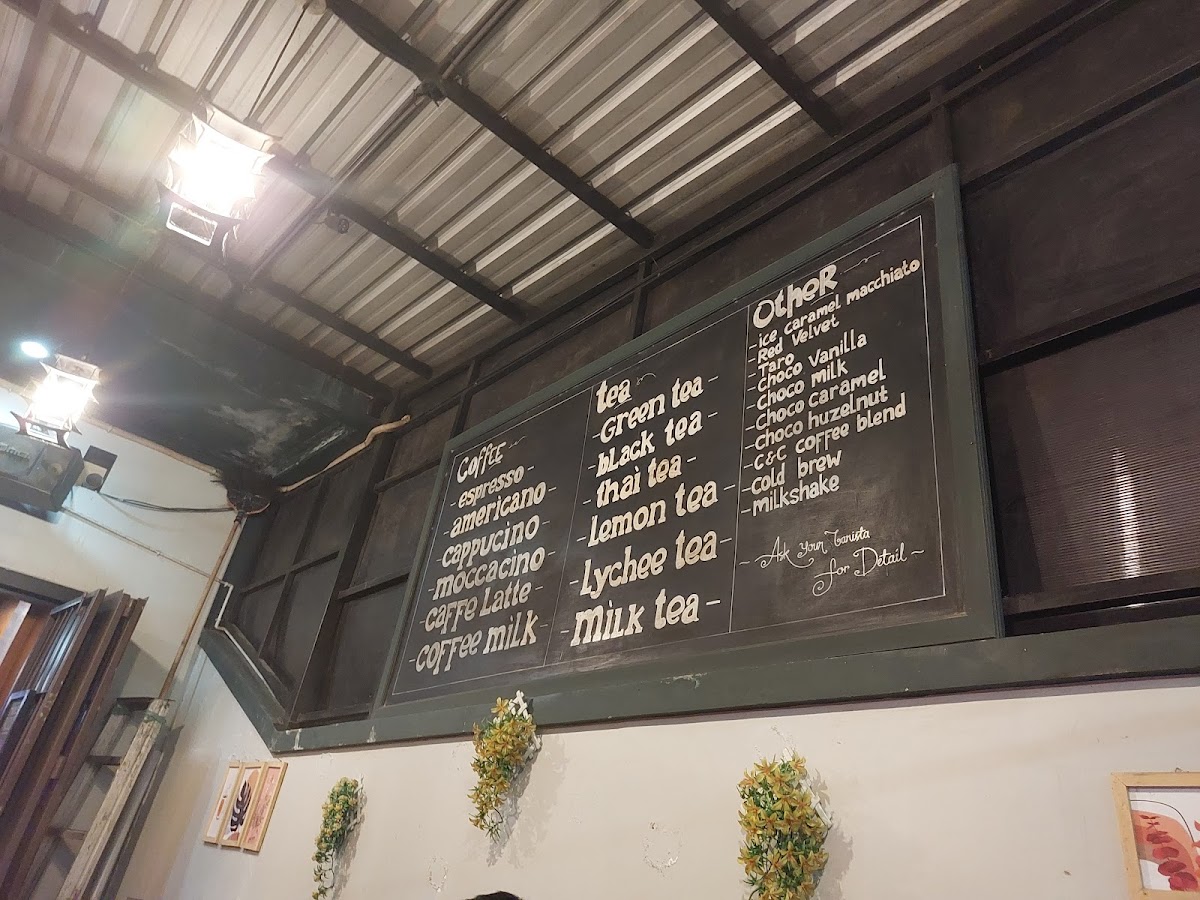 Coffee
- espresso -
- americano -
- cappucino -
- moccacino -
- caffe Latte -
- coffee milk -
tea
- Green tea -
- bLack tea -
- thai tea -
- Lemon tea -
- Lychee tea -
- Milk tea -
OtheR
- ice caramel macchiato
- Red Velvet
- Taro
- choco vanilla
- choco milk
- choco caramel
- choco huzelnut
- C&C coffee blend
- cold brew
- milkshake
~ Ask Your Barista
for Detail ~